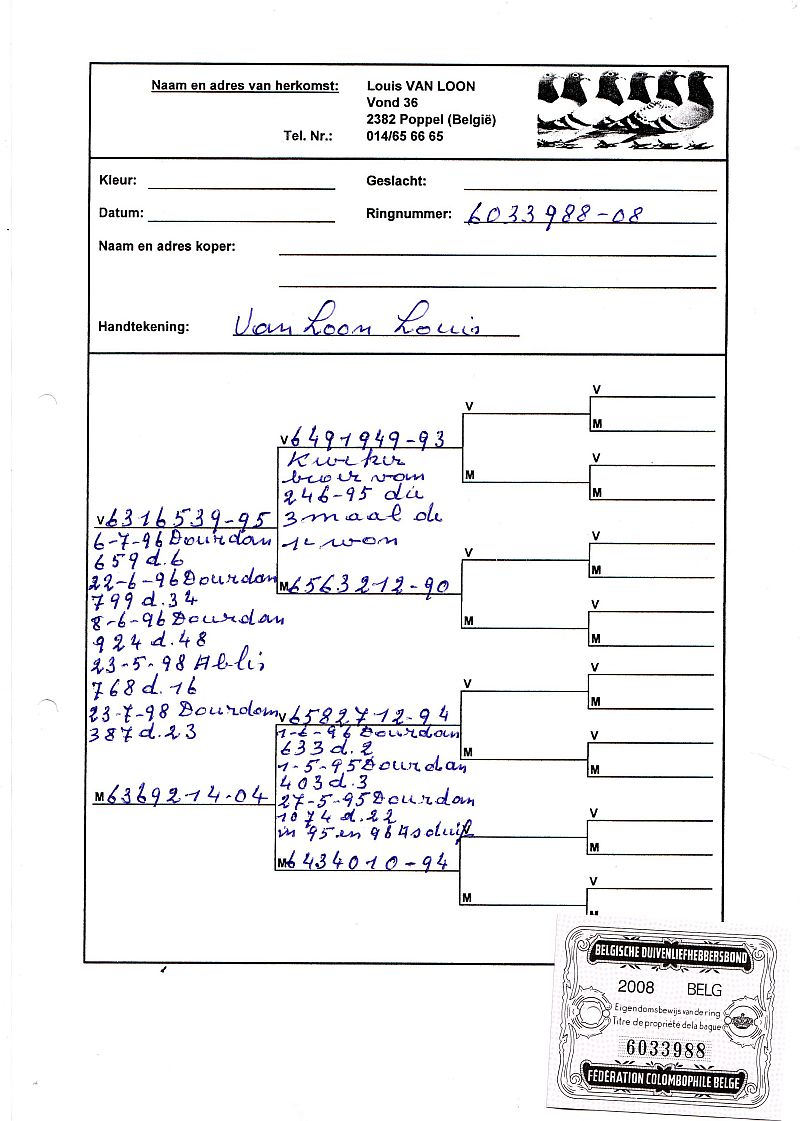 Naam en adres van herkomst: Louis VAN LOON
Vond 36
2382 Poppel (België)
Tel. Nr.: 014/65 66 65
Kleur: Geslacht:
Datum: Ringnummer: 6033988-08
Naam en adres koper:
Handtekening: Van Loon Louis
V 6316539-95
6-7-96 Dourdan
659 d.6
22-6-96 Dourdan
799 d.34
8-6-96 Dourdan
924 d.48
23-5-98 Ablis
768 d.16
23-7-98 Dourdan
387 d.23
M 6369214-04
V 6491949-93
Kweker
broer van
246-95 die
3 maal de
1e won
M 6563212-90
V 6582712-94
1-6-96 Dourdan
633 d.2
1-5-95 Dourdan
403 d.3
27-5-95 Dourdan
1074 d.22
in 95 en 96 Asduif
M 6434010-94
V
M
V
M
V
M
V
M
V
M
V
M
V
M
V
M
V
M
V
M
V
M
V
M
BELGISCHE DUIVENLIEFHEBBERSBOND
2008 BELG
Eigendomsbewijs van de ring
Titre de propriété de la bague
6033988
FÉDÉRATION COLOMBOPHILE BELGE